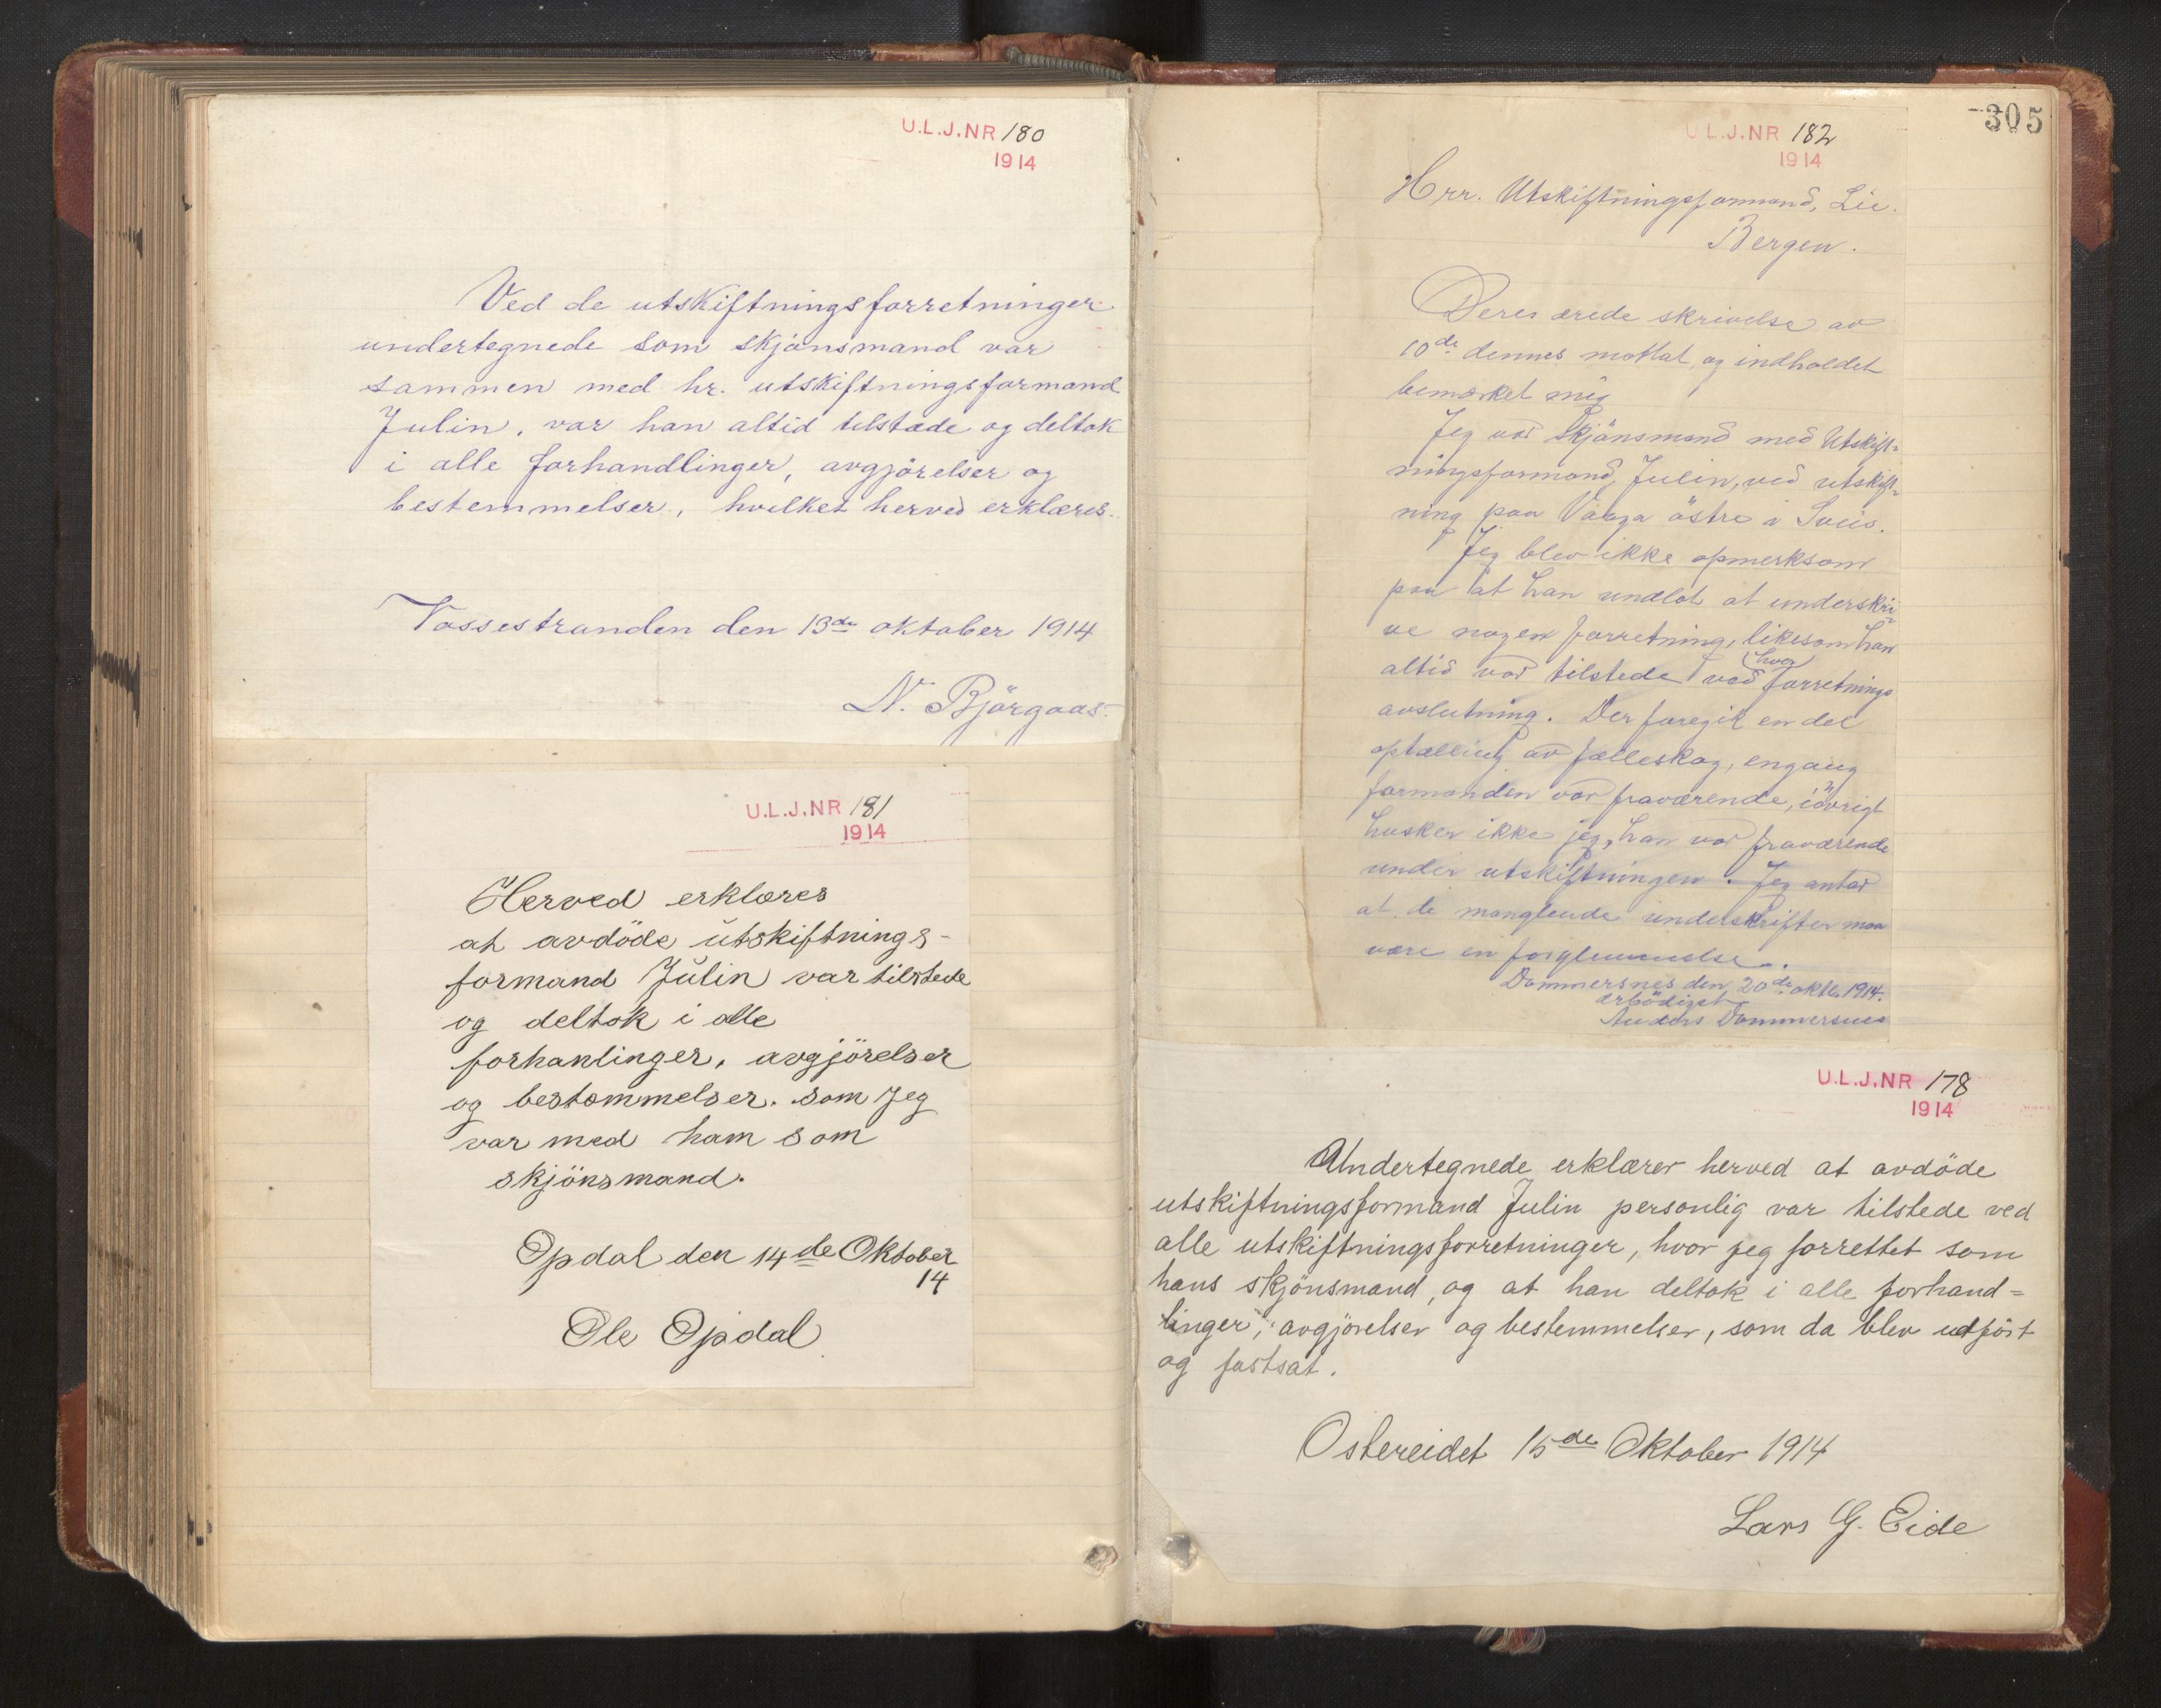 U.L.J.NR 180
1914
Ved de utskiftningsforretninger
undertegnede som skjönsmand var
sammen med hr. utskiftningsformand
Julin, var han altid tilstæde og deltok
i alle forhandlinger, avgjörelser og
bestemmelser, hvilket herved erklæres.
Vossestranden den 13de oktober 1914
N. Björgaas.
U.L.J.NR 181
1914
Herved erklæres
at avdöde utskiftnings-
formand Julin var tilstede
og deltok i alle
forhanlinger, avgjörelser
og bestemmelser. som jeg
var med ham som
skjönsmand.
Opdal den 14de Oktober
14
Ole Opdal
305
U.L.J.NR 182
1914
Hrr. Utskiftningsformand, Lie.
Bergen.
Deres ærede skrivelse av
10de dennes mottat, og indholdet
bemærket mig
Jeg var Skjönsmand med Utskift=
ningsformand, Julin, ved utskift=
ning paa Vaaga östre i
Jeg blev ikke opmerksom
paa at han undlot at underskri=
ve nogen forretning, likesom han
altid var tilstede ved hver forretnings
avslutning. Der foregik en del
optælling av fælleskog, engang
formanden var fraværende, iövrigt
husker ikke jeg, han var fraværende
under utskiftningen. Jeg antar
at de manglende underskrifter maa
være en forglemmelse.
Dommersnes den 20de oktb. 1914.
ærbödigst
Anders Dommersnes
U.L.J.NR 178
1914
Undertegnede erklærer herved at avdöde
utskiftningsformand Julin personlig var tilstede ved
alle utskiftningsforretninger, hvor jeg forrettet som
hans skjönsmand, og at han deltok i alle forhand=
linger, avgjörelser og bestemmelser, som da blev udfört
og fastsat.
Ostereidet 15de Oktober 1914
Lars G. Eide